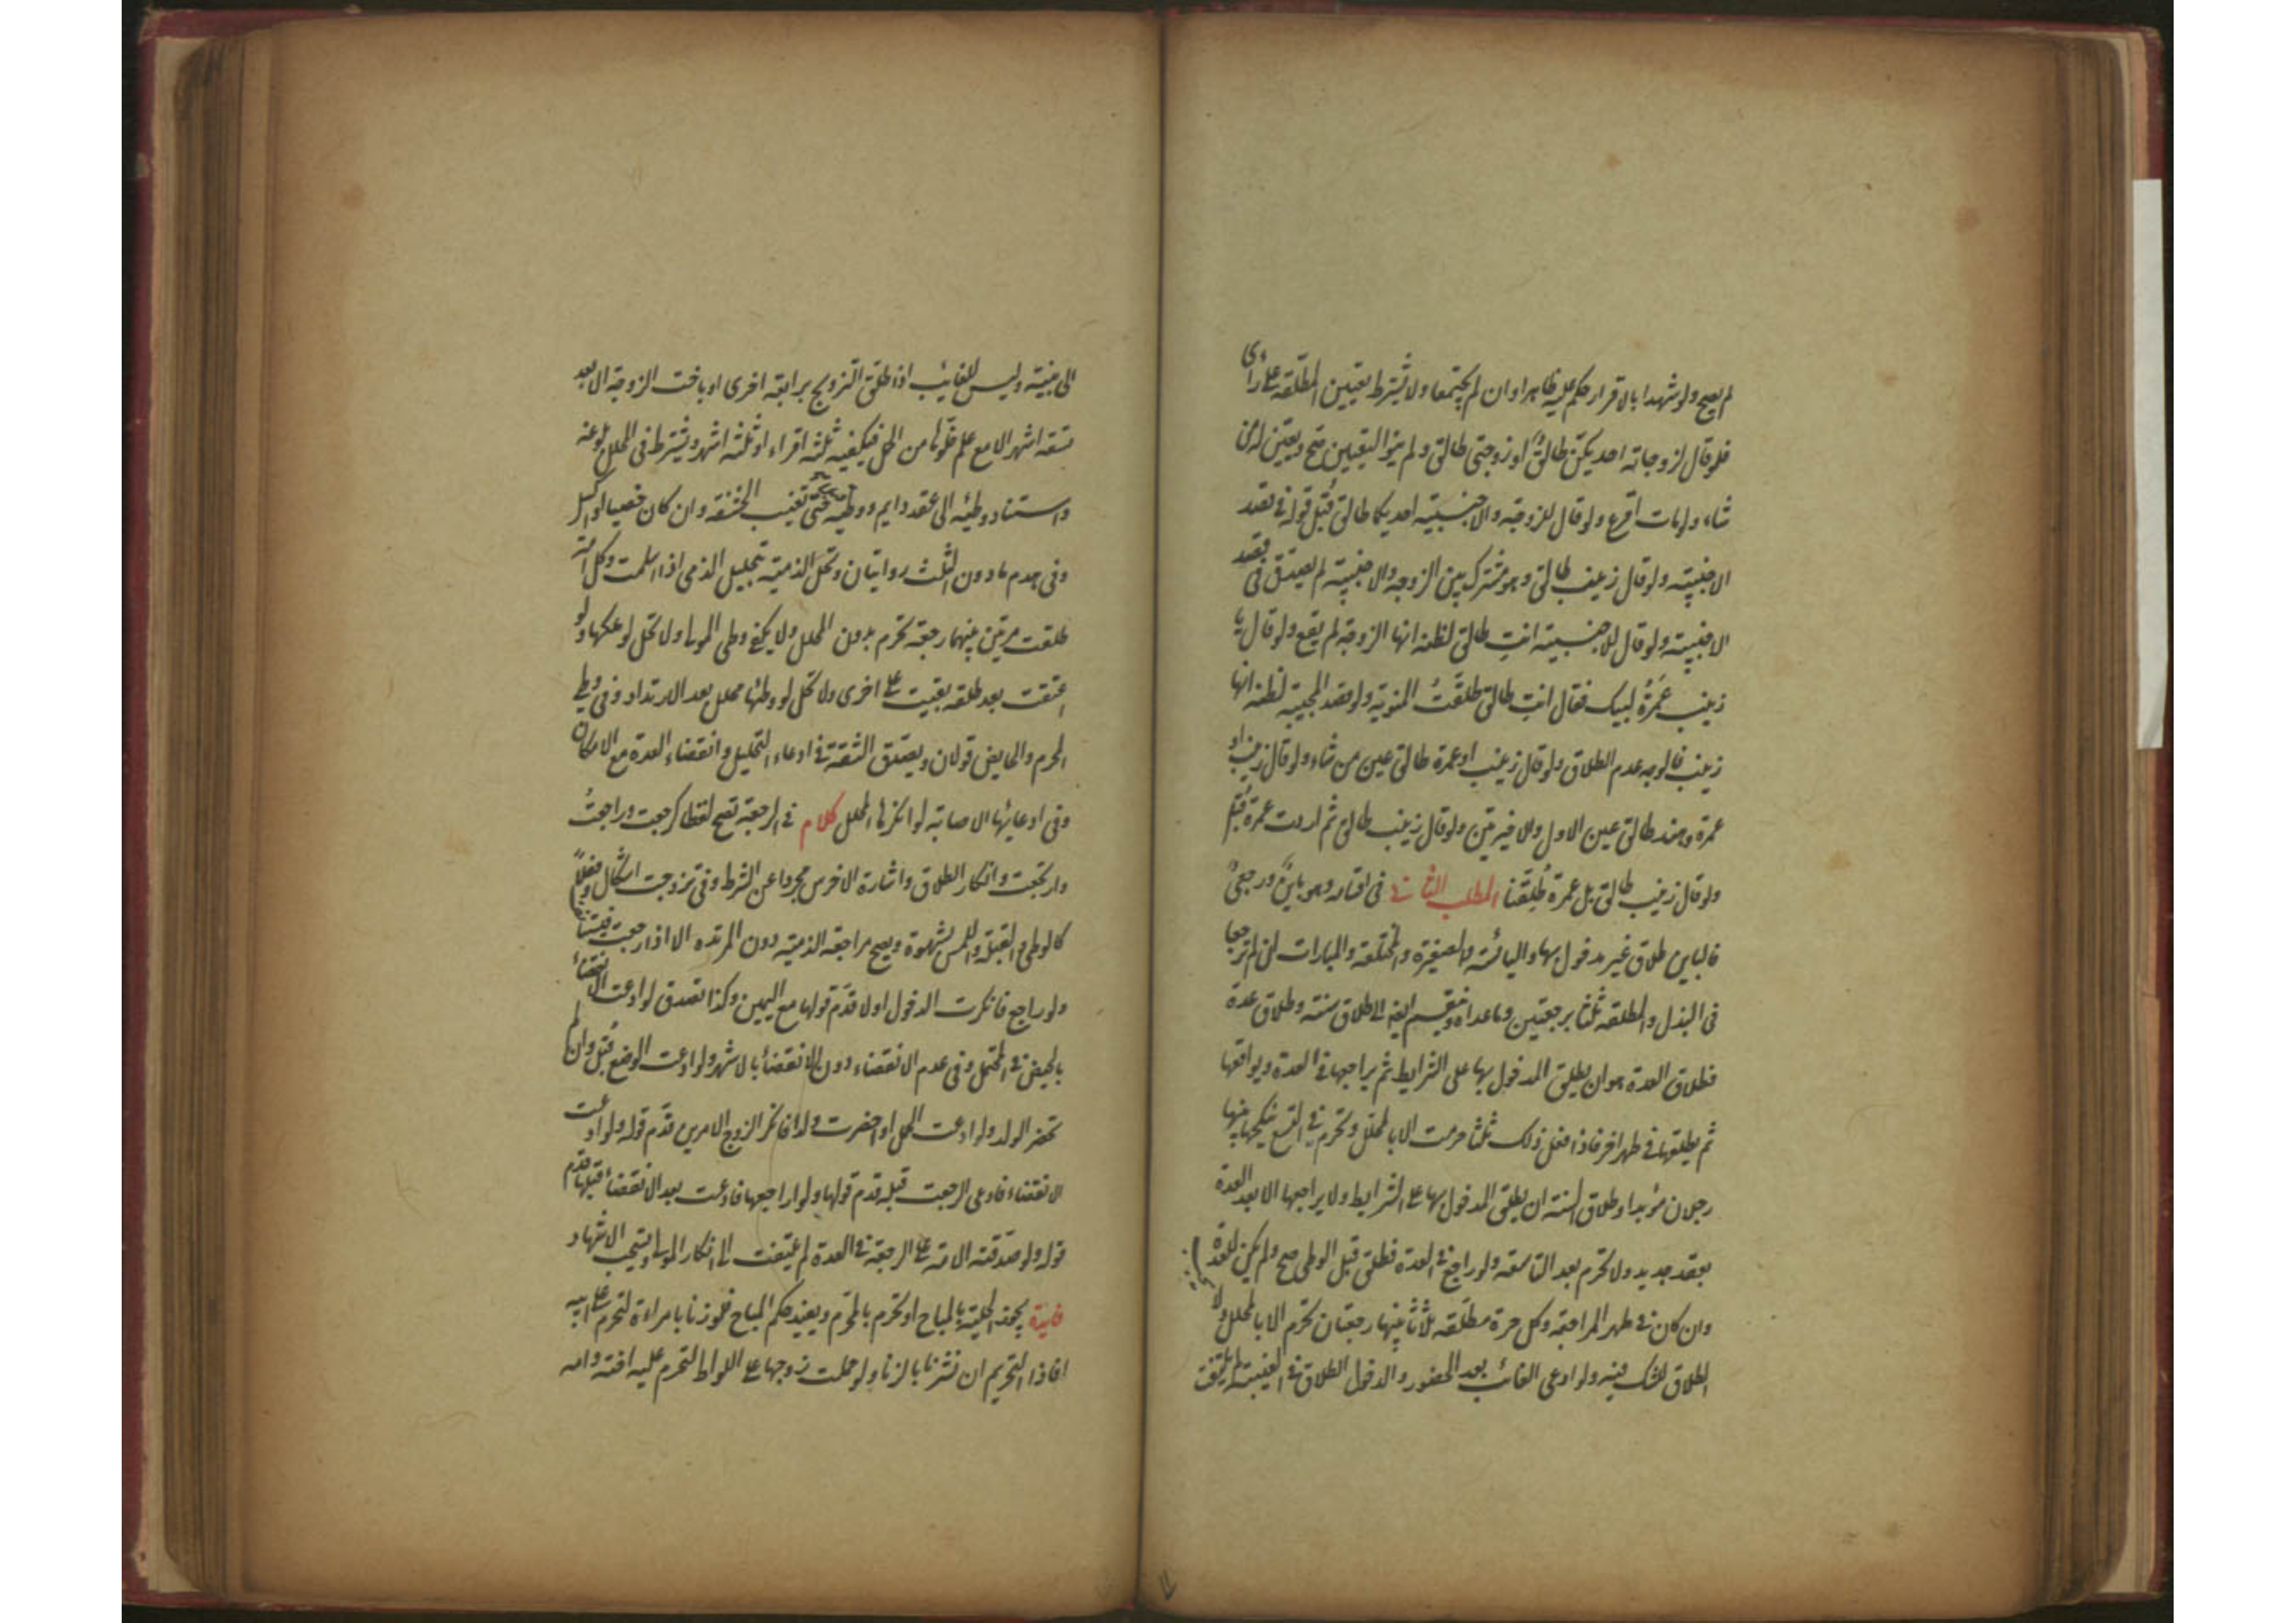 لم يصح ولو شهدا بالاقرار حكم عليه ظاهرا وان لم يجتمعا ولا يشترط تعيين المطلقة على رأى
فلو قال لزوجاته احديكن طالق او زوجتى طالق ولم ينو التعيين صح ويعين لمن
شاء ولو مات اقرع ولو قال للزوجة والاجنبية احديكما طالق قبل قوله فى قصد
الاجنبية ولو قال زينب طالق وهو مشترك بين الزوجة والاجنبية لم يصدق فى قصد
الاجنبية ولو قال للاجنبية انت طالق لظنه انها الزوجة لم يقع ولو قال يا
زينب عَمَرَةُ لبيك فقال انت طالق طلقت المنوية ولو قصد المجيبة لظنه انها
زينب فالوجه عدم الطلاق ولو قال زينب او عمرة طالق عين من شاء ولو قال زينب او
عمرة وهند طالق عين الاول والاخيرتين ولو قال زينب طالق ثم اردت عمرة قُبِل
ولو قال زينب طالق بل عمرة طُلِّقتا المطلب الثانى فى اقسامه وهو باين ورجعىٌ
فالباين طلاق غير مدخول بها واليائسة والصغيرة والمختلعة والمبارات لمن لم ترجعا
فى البذل والمطلقة ثلثا برجعتين وما عداه وينقسم ايضا الى طلاق سنة وطلاق عدة
فطلاق العدة هو ان يطلق المدخول بها على الشرايط ثم يراجعها فى العدة ويواقعها
ثم يطلقها فى طهر اخر فاذا فعل ذلك ثلثا حرمت الا بالمحلل وتحرم فى التسع ينكحها بينها
رجلان مؤبدا وطلاق السنة ان يطلق المدخول بها على الشرايط ولا يراجعها الا بعد العدة
بعقد جديد ولا تحرم بعد التاسعة ولو راجع فى العدة فطلق قبل الوطى صح ولم يكن للعدة
وان كان فى طهر المراجعة وكل حرة مطلقة ثلاثا بينها رجعتان تحرم الا بالمحلل ولا
الطلاق للشك فيه ولو ادعى الغائب بعد الحضور والدخول الطلاق فى الغيبة لم يلتفت
الى بينته وليس للغايب اذا طلق التزويج برابعة اخرى او باخت الزوجة الا بعد
تسعة اشهر الا مع علم خلوها من الحمل فيكفيه ثلثة اقراء او ثلثة اشهر ويشترط فى المحلل بلوغه
واستناد وطئه الى عقد دايم ووطيه حتى تغيب الحشفة وان كان خصيا او اكسل
وفى هدم ما دون الثلث روايتان وتحل الذمية بتحليل الذمى اذا اسلمت وكل امة
طلقت مرتين بينهما رجعة تحرم بدون المحلل ولا يكفى وطى المولى ولا تحل لو ملكها ولو
اعتقت بعد طلقة بقيت على اخرى ولا تحل لو وطئها محلل بعد الارتداد وفى وطى
المحرم والحايض قولان ويصدق الثقة فى ادعاء التحليل وانقضاء العدة مع الامكان
وفى ادعائها الاصابة لو انكرها المحلل كلام فى الرجعة تصح لفظا كرجعت وراجعتُ
وارتجعت وانكار الطلاق واشارة الاخرس مجردا عن الشرط وفى تزوجت اشكال وفعلاً
كالوطى والقبلة واللمس بشهوة ويصح مراجعة الذمية دون المرتدة الا اذا رجعت
ولو راجع فانكرت الدخول اولا قدّم قولها مع اليمين وكذا تصدق لو ادعت الانقضاء
بالحيض فى المحتمل وفى عدم الانقضاء دون الانقضاء بالاشهر ولو ادعت الوضع قُبل وان لم
تحضر الولد ولو ادعت الحمل او احضرت ولدا فانكر الزوج الامرين قدّم قوله ولو ادعت
الانقضاء فادعى الرجعت قبله قدم قولها ولو راجعها فادعت بعد الانقضاء قبلها قدّم
قوله ولو صدقته الامة على الرجعة فى العدة لم يلتفت الى انكار المولى ويستحب الاشهاد
فايدة يجوز الحيلة بالمباح او تحرم بالمحرّم ويفيد حكم المباح فلو زنا بامراءة لتحرم على ابيه
افاد التحريم ان نشرنا بالزنا ولو حملت زوجها على اللواط لتحرم عليه اخته وامه